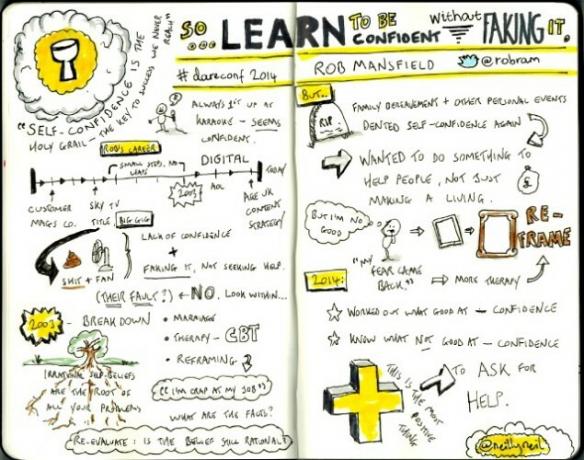 SO ... LEARN TO BE CONFIDENT without FAKING IT.
# dareconf 2014
ROB MANSFIELD @robram
"SELF-CONFIDENCE IS THE
HOLY GRAIL - THE KEY TO SUCCESS WE NEVER REACH"
ALWAYS 1ST UP AT
KARAOKE - SEEMS
CONFIDENT.
ROB'S CAREER
SMALL STEPS, NO LEAPS
DIGITAL
TODAY
CUSTOMER
MAGS CO.
SKY TV
TITLE.
2003
AOL
AGE UK
CONTENT
STRATEGY
BIG GIG
SHIT + FAN
LACK OF CONFIDENCE
+
FAKING IT, NOT SEEKING HELP.
(THEIR FAULT?) ← NO. LOOK WITHIN...
2003 - BREAKDOWN
• MARRIAGE
• THERAPY - CBT
• REFRAMING
IRRATIONAL SELF-BELIEFS
ARE THE ROOT OF
ALL YOUR PROBLEMS
"I'M CRAP AT MY JOB"
WHAT ARE THE FACTS?
RE-EVALUATE: IS THE BELIEF STILL RATIONAL?
BUT...
RIP
FAMILY BEREAVEMENT + OTHER PERSONAL EVENTS
DENTED SELF-CONFIDENCE AGAIN
WANTED TO DO SOMETHING TO
HELP PEOPLE, NOT JUST
MAKING A LIVING.
£
BUT I'M NO
GOOD
RE-
FRAME
2014:
"MY
FEAR CAME
BACK." ⇒ MORE THERAPY
☆ WORKED OUT WHAT GOOD AT - CONFIDENCE
☆ KNOW WHAT NOT GOOD AT - CONFIDENCE
TO ASK FOR
HELP.
THIS IS THE MOST
POSITIVE
THING
@neillyneil